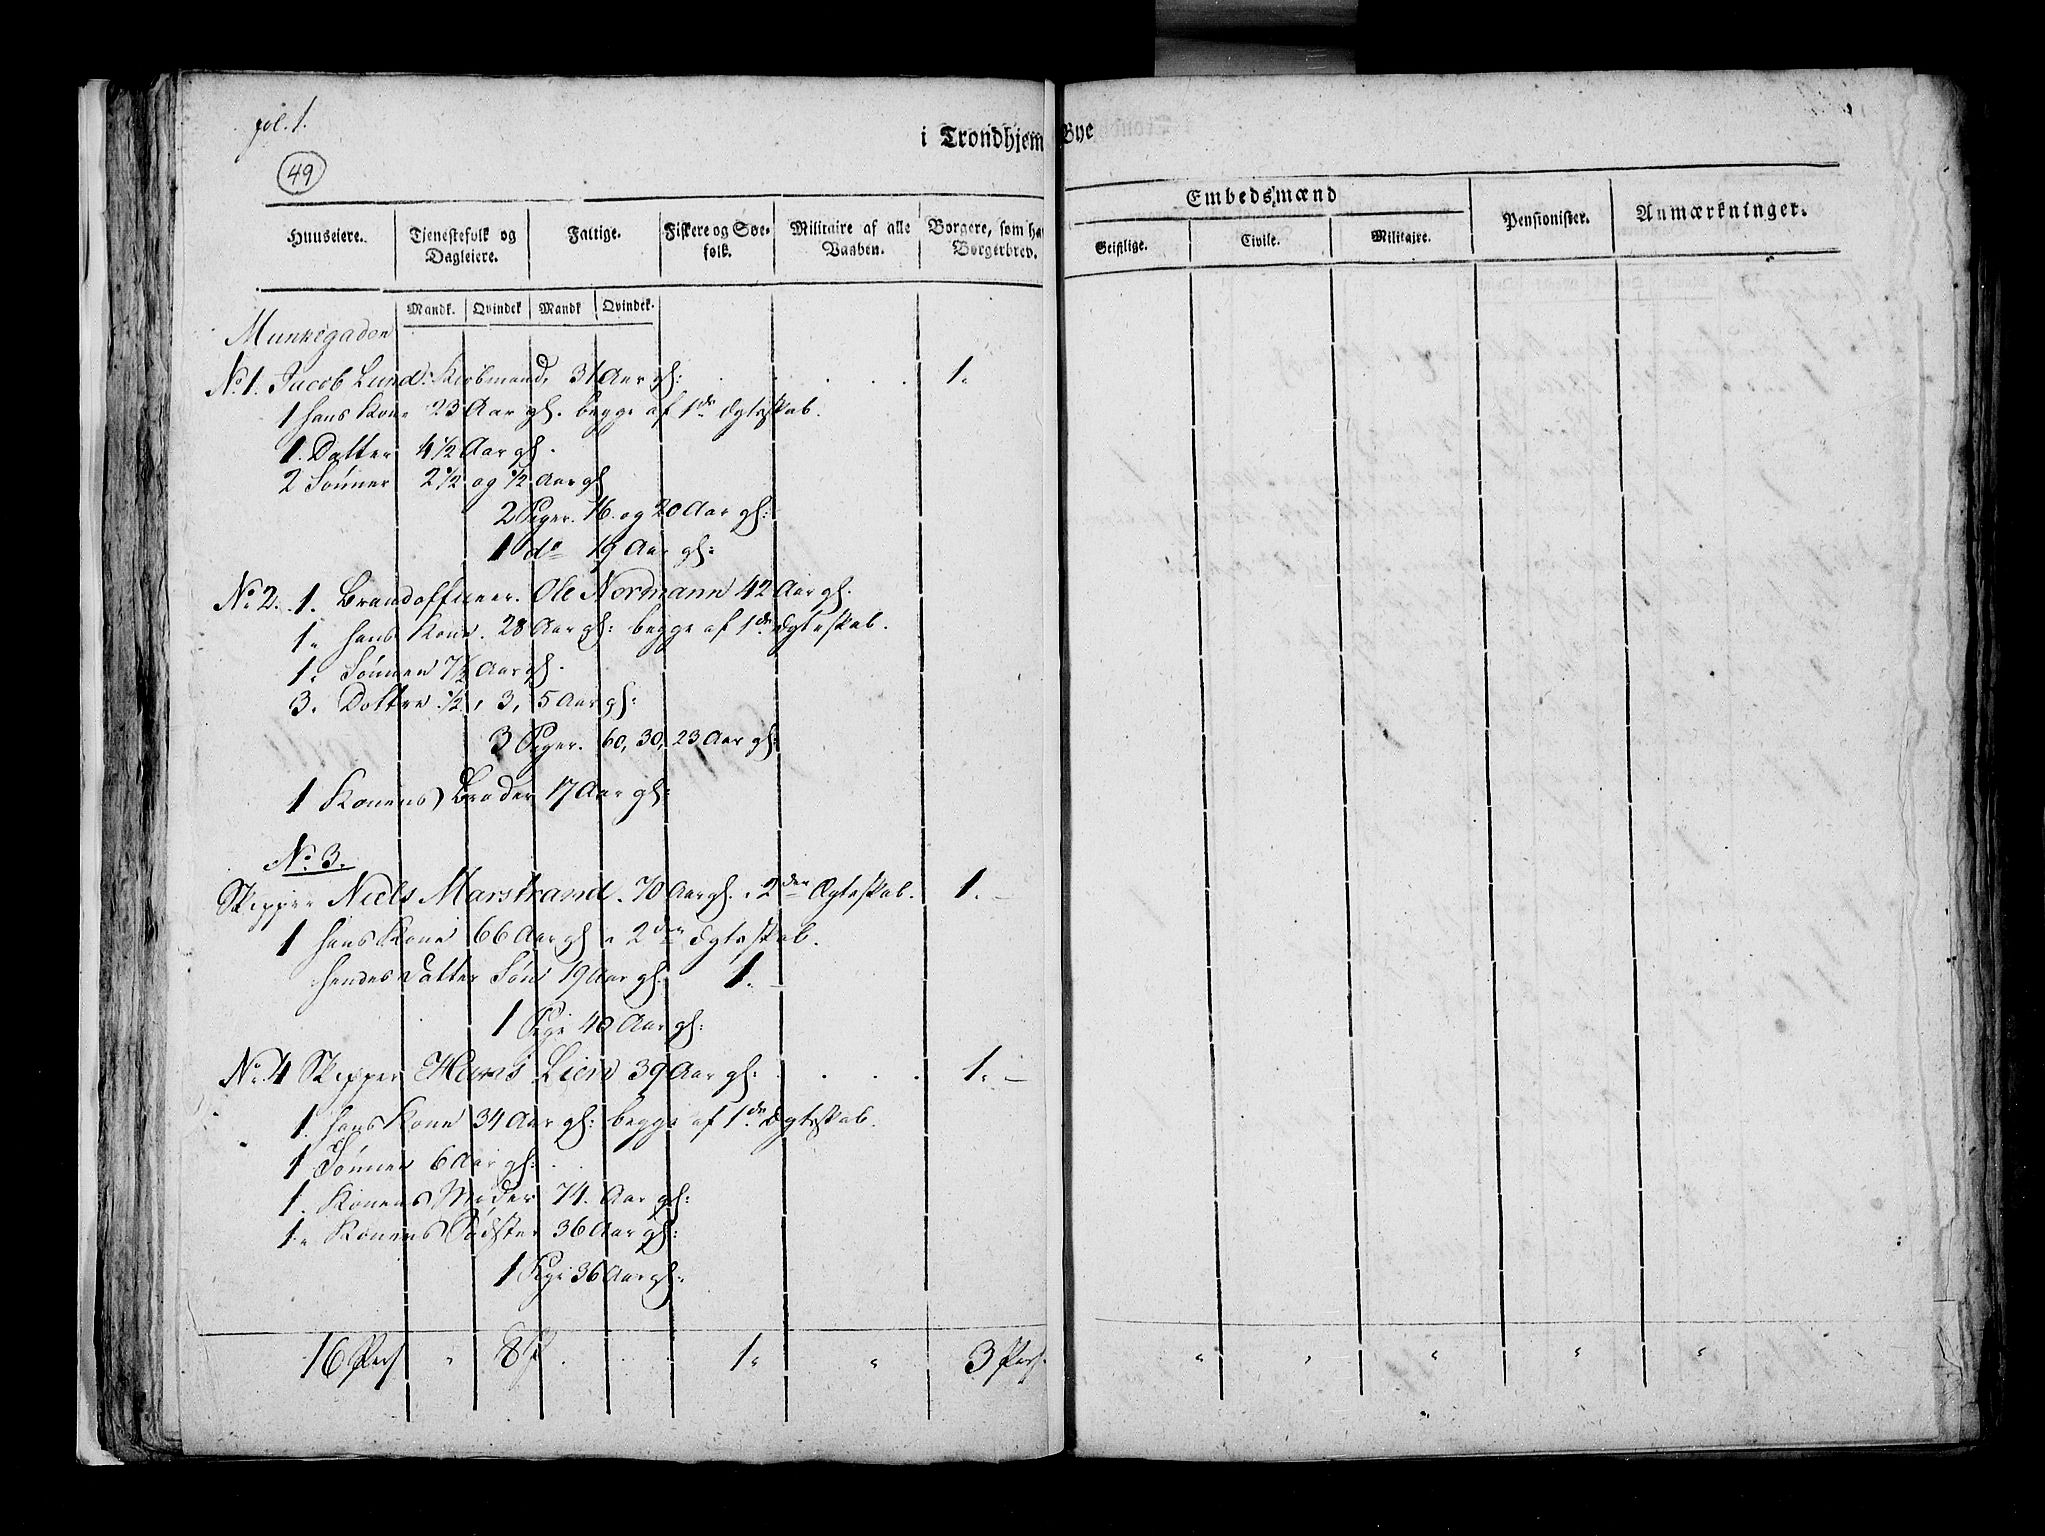 fol. 1.
49
i Trondhjem Bye
Embedsmænd
Huuseiere.
Tjenestefolk og Dagleiere.
Fattige.
Fiskere og Søe-folk.
Militaire af alle Vaaben.
Borgere, som ha Borgerbrev.
Geistlige.
Civile.
Militaire.
Pensionister.
Anmærkninger.
Mandk. Qvindek Mandk Qvindek.
Munkegaden
No. 1. Jacob Lund. Kiøbmand, 31 Aar gl: . . . . 1.
1 hans Kone 23 Aar gl. begge af 1de Ægteskab.
1. Datter 4 1/2 Aar gl.
2 Sønner 2 1/2 og 1/2 Aar gl
2 Piger. 16. og 20 Aar gl:
1 do 19 Aar gl:
No. 2. 1. Brandofficeer. Ole Normann 42 Aar gl.
1. hans Kone. 28 Aar gl: begge af 1de Ægteskab.
1. Sønner 7 1/2 Aar gl.
3. Dottre 1/2, 3, 5 Aar gl:
3 Piger. 60, 30, 23 Aar gl:
1 Konens Broder 17 Aar gl:
No. 3.
Skipper Niels Marstrand. 70 Aar gl. i 2den Ægteskab. 1. —
1 hans Kone 66 Aar gl i 2den Ægteskab.
hendes Datter Søn 19 Aar gl. 1. —
1 Pige 40 Aar gl:
No. 4 Skipper Hans Lien 39 Aar gl: . . . 1. —
1. hans Kone 34 Aar gl: begge af 1de Ægteskab.
1 Sønner 6 Aar gl:
1. Konens Moder 74. Aar gl:
1. Konens Sødster 36 Aar gl:
1 Pige 36 Aar gl:
16 Pers " 8 P . . . 1. " 3 Pers. " " " " "